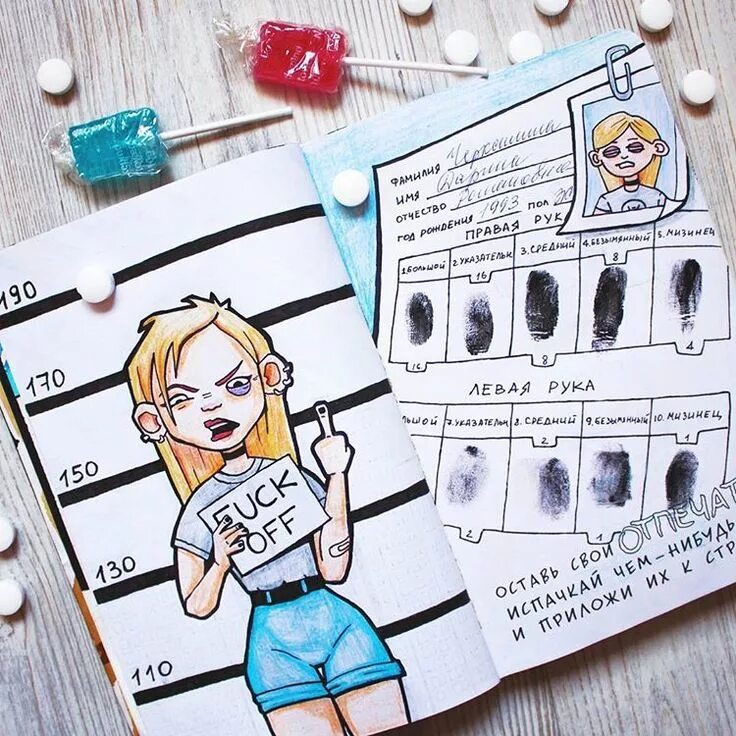 190
170
150
130
110
FUCK
OFF
ФАМИЛИЯ Черкашина
ИМЯ Дарина
ОТЧЕСТВО
ГОД РОЖДЕНИЯ 1993 ПОЛ Ж
ПРАВАЯ РУК
1.БОЛЬШОЙ 2.УКАЗАТЕЛЬН 3.СРЕДНИЙ 4.БЕЗЫМЯННЫЙ 5.МИЗИНЕЦ
16 8
16 8 4
ЛЕВАЯ РУКА
ЛЬШОЙ 7.УКАЗАТЕЛЬН 8.СРЕДНИЙ 9.БЕЗЫМЯННЫЙ 10.МИЗИНЕЦ
2 1
2 1
ОСТАВЬ СВОИ ОТПЕЧАТ
ИСПАЧКАЙ ЧЕМ-НИБУДЬ
И ПРИЛОЖИ ИХ К СТР